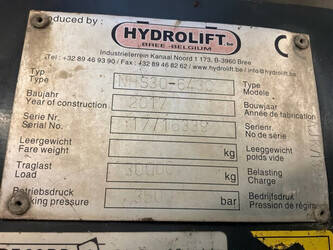 Produced by:
HYDROLIFT.be
BREE-BELGIUM
Industrieterrein Kanaal Noord 1173, B-3960 Bree
Tel.: +32 89 46 93 90 / Fax: +32 89 46 82 62 / www.hydrolift.be / info@hydrolift.be
Typ Type
Type Modele
Baujahr 2017 Bouwjaar
Year of construction Année de fabrication
Serie Nr. Serienr.
Serial No. No de série
Leergewicht Leeggewicht
Fare weight kg poids vide
Traglast Belasting
Load kg Charge
Betriebsdruck Bedrijfsdruk
king pressure bar Pression de régim